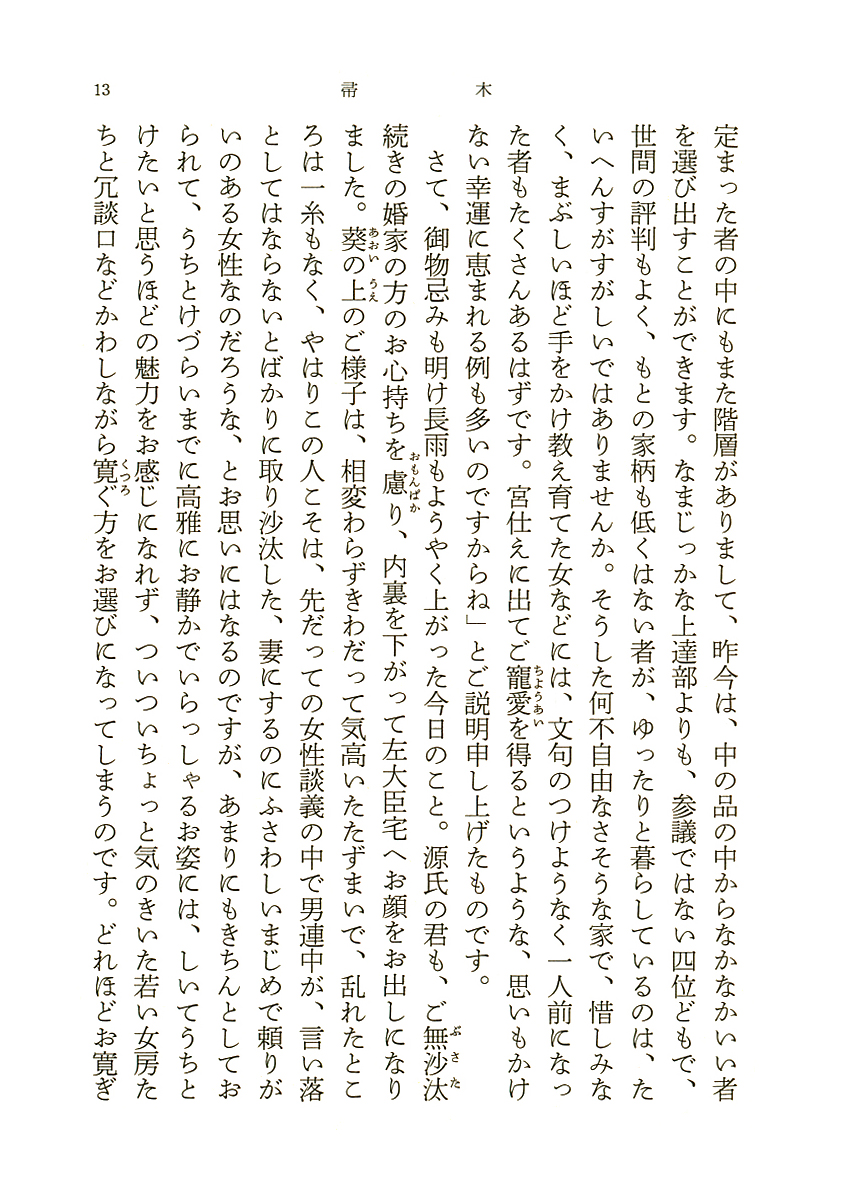 帚木
13
定まった者の中にもまた階層がありまして、昨今は、中の品の中からなかなかいい者
を選び出すことができます。なまじっかな上達部よりも、参議ではない四位どもで、
世間の評判もよく、もとの家柄も低くはない者が、ゆったりと暮らしているのは、た
いへんすがすがしいではありませんか。そうした何不自由なさそうな家で、惜しみな
く、まぶしいほど手をかけ教え育てた女などには、文句のつけようなく一人前になっ
た者もたくさんあるはずです。宮仕えに出てご寵愛を得るというような、思いもかけ
ない幸運に恵まれる例も多いのですからね」とご説明申し上げたものです。
さて、御物忌みも明け長雨もようやく上がった今日のこと。源氏の君も、ご無沙汰
続きの婚家の方のお心持ちを慮り、内裏を下がって左大臣宅へお顔をお出しになり
ました。葵の上のご様子は、相変わらずきわだって気高いたたずまいで、乱れたとこ
ろは一糸もなく、やはりこの人こそは、先だっての女性談義の中で男連中が、言い落
としてはならないとばかりに取り沙汰した、妻にするのにふさわしいまじめで頼りが
いのある女性なのだろうな、とお思いにはなるのですが、あまりにもきちんとしてお
られて、うちとけづらいまでに高雅にお静かでいらっしゃるお姿には、しいてうちと
けたいと思うほどの魅力をお感じになれず、ついついちょっと気のきいた若い女房た
ちと冗談口などかわしながら寛ぐ方をお選びになってしまうのです。どれほどお寛ぎ